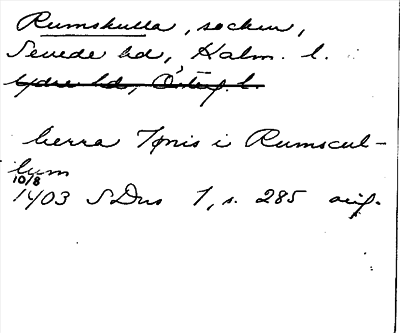 Rumskulla, socken,
Sevede hd, Kalm. l.
Ydre hd, Österg. l.
herra Tpnis i Rumscul-
lum
10/8
1403 SDns 1, s. 285 orig.